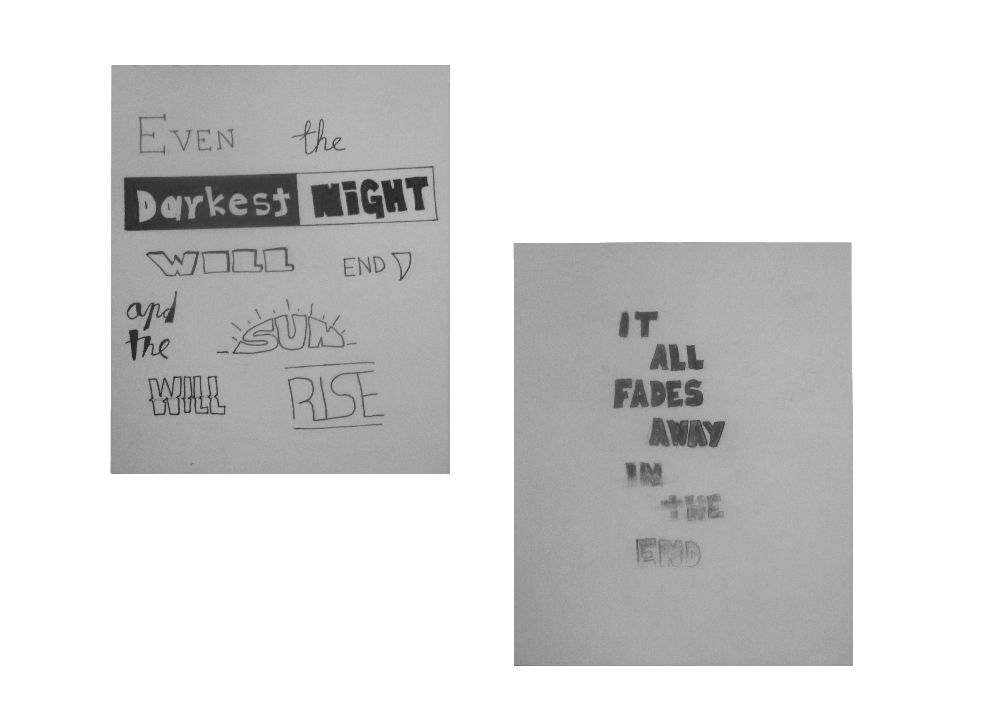 EVEN the
Darkest NiGHT
WILL END
and
the SUN
WILL RISE
IT
ALL
FADES
AWAY
IN
THE
END